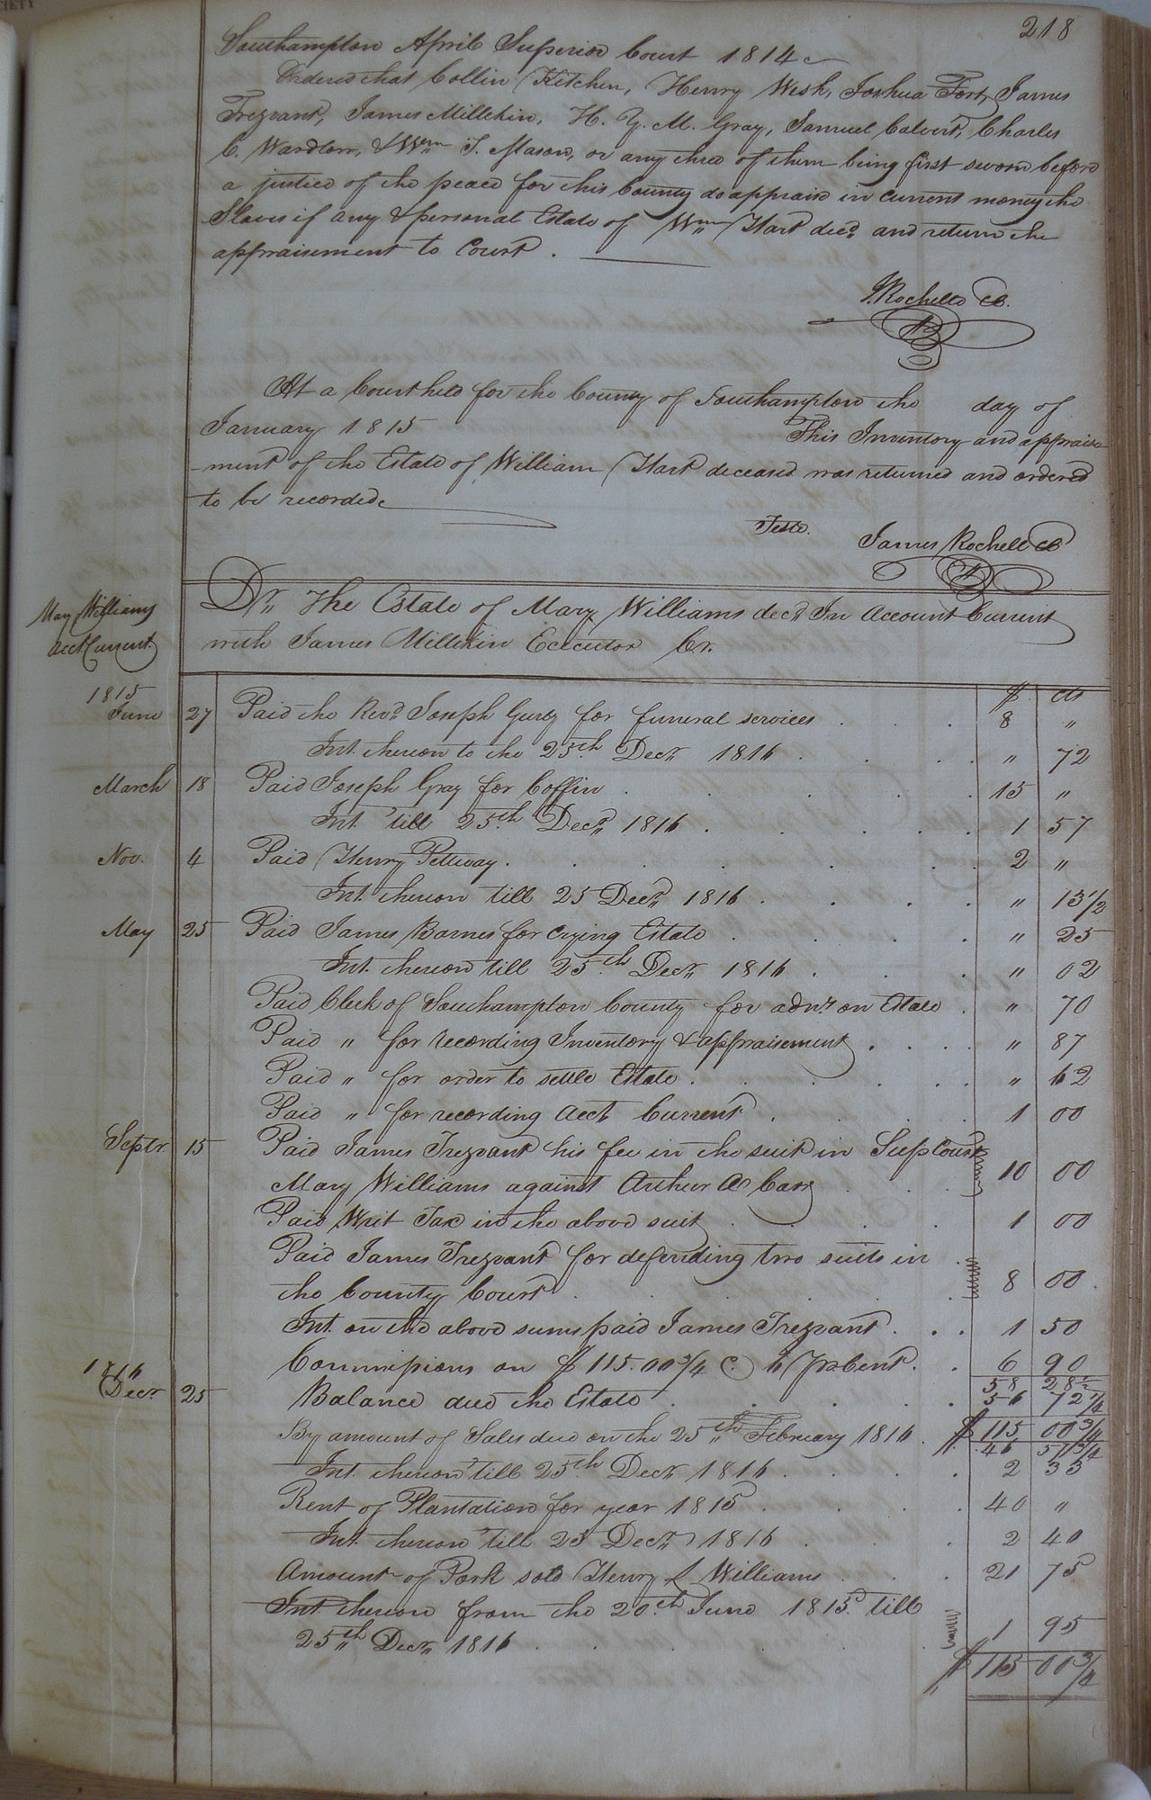 218
Southampton April Superior Court 1814
Ordered that Collin Kitchen, Henry West, Joshua Fort, James
Trezvant, James Millikin, H. Y. M. Gray, Samuel Calvert, Charles
C. Wardlow, & Wm. T. Mason, or any three of them being first sworn before
a justice of the peace for this County do appraise in current money the
Slaves if any & personal Estate of Wm Hart decd. and return the
appraisement to Court.
J. Rochelle
At a Court held for the County of Southampton the day of
January 1815 This Inventory and appraise
-ment of the Estate of William Hart deceased was returned and ordered
to be recorded
Teste. James Rochelle
Mary Williams
Acct Current
Dr. The Estate of Mary Williams decd. In Account Current
with James Millikin Executor Cr.
$ cts
1815
June 27 Paid the Revd. Joseph Gurly for funeral services 8 "
Int. thereon to the 25th Decr. 1816 " 72
March 18 Paid Joseph Gray for Coffin 15 "
Int. till 25th Decr. 1816 1 57
Nov. 4 Paid Henry Pettway 2 "
Int. thereon till 25 Decr. 1816 " 13 1/2
May 25 Paid James Barnes for crying Estate " 25
Int. thereon till 25th Decr. 1816 " 02
Paid Clerk of Southampton County for admr. on Estate " 70
Paid " for recording Inventory & appraisement " 87
Paid " for order to settle Estate " 62
Paid " for recording acct Current 1 00
Septr. 15 Paid James Trezvant his fee in the suit in Sup Court
Mary Williams against Arthur A Carr 10 00
Paid Writ Tax in the above suit 1 00
Paid James Trezvant for defending two suits in
the County Court 8 00
Int. on the above sums paid James Trezvant 1 50
Commissions on $115.00 3/4 c. 6 pr Cent. 6 90
58 28 1/2
1816
Decr 25 Balance due the Estate 56 72 1/4
$115 00 3/4
By amount of Sales due on the 25th February 1816 46 57 3/4
Int. thereon till 25th Decr. 1816 2 33
Rent of Plantation for year 1815 40 "
Int. thereon till 25 Decr. 1816 2 40
Amount of Pork sold Henry Williams 21 75
Int. thereon from the 20th June 1815 till
25th Decr. 1816 1 95
$115 00 3/4